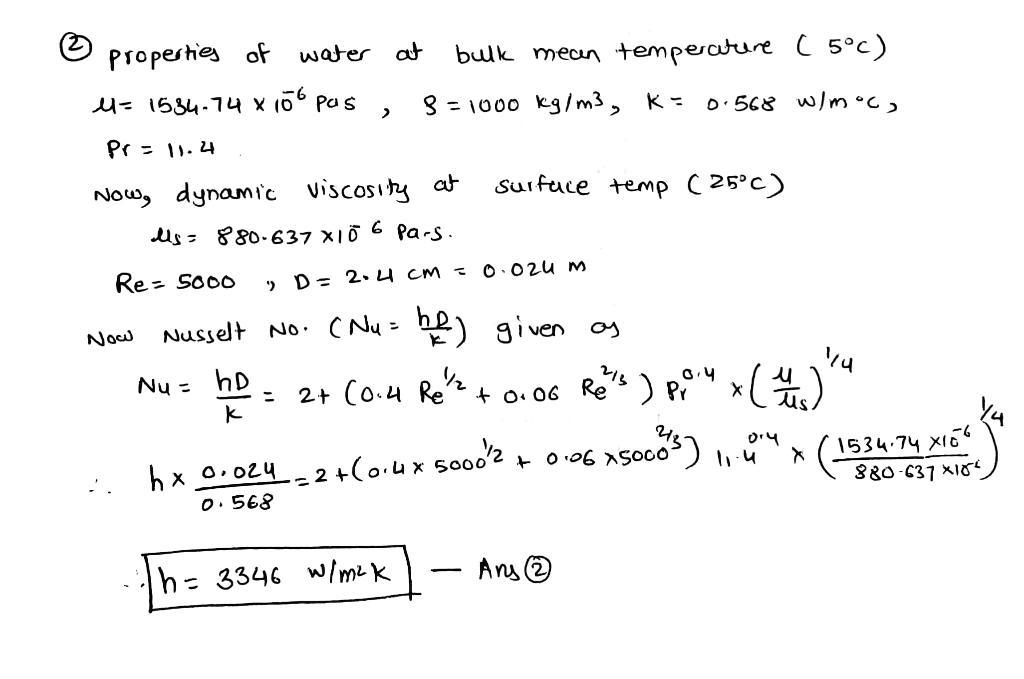 ② properties of water at bulk mean temperature ( 5°C)
μ = 1534.74 × 10⁻⁶ Pas , ρ = 1000 kg/m³, K = 0.568 w/m°C,
Pr = 11.4
Now, dynamic viscosity at surface temp (25°C)
μs = 880.637 ×10⁻⁶ Pa-s.
Re = 5000 , D = 2.4 cm = 0.024 m
Now Nusselt No. (Nu = hD/k) given as
Nu = hD/k = 2+ (0.4 Re^1/2 + 0.06 Re^2/3 ) Pr^0.4 × (μ/μs)^1/4
∴ h × 0.024/0.568 = 2+(0.4 × 5000^1/2 + 0.06 ×5000^2/3) 11.4^0.4 × (1534.74 ×10⁻⁶/880.637 ×10⁻⁶)^1/4
∴ h = 3346 w/m²k — Ans ②